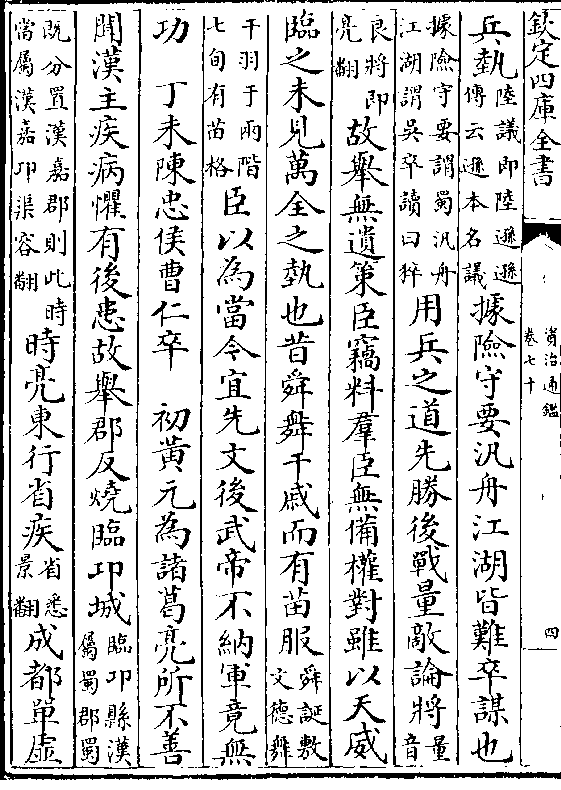 欽定四庫全書
資治通鑑
卷七十
四
兵埶陸議即陸遜遜傳云遜本名議據險守要汎舟江湖皆難卒謀也
據險守要謂蜀汎舟江湖謂吳卒讀曰猝用兵之道先勝後戰量敵論將量音
良將即亮翻故舉無遺策臣竊料羣臣無備權對雖以天威
臨之未見萬全之埶也昔舜舞干戚而有苗服舜誕敷文德舞
干羽于兩階七旬有苗格臣以為當今宜先文後武帝不納軍竟無
功　丁未陳忠侯曹仁卒　初黃元為諸葛亮所不善
聞漢主疾病懼有後患故舉郡反燒臨卭城臨卭縣漢屬蜀郡蜀
既分置漢嘉郡則此時當屬漢嘉卭渠容翻時亮東行省疾省悉景翻成都單虛